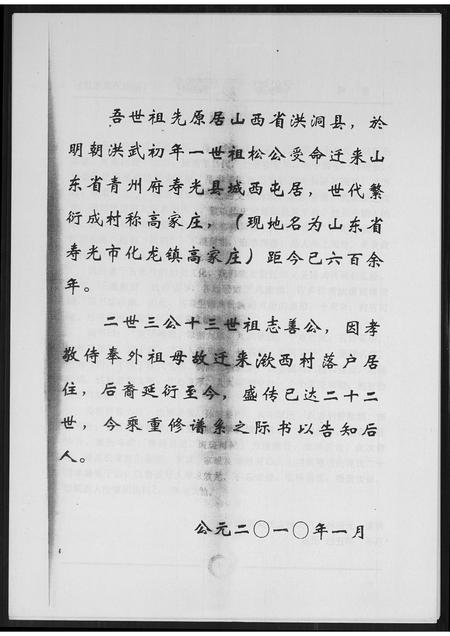 吾世祖先原居山西省洪洞县，於
明朝洪武初年一世祖松公受命迁来山
东省青州府寿光县城西屯居，世代繁
衍成村称高家庄，（现地名为山东省
寿光市化龙镇高家庄）距今已六百余
年。
二世三公十三世祖志善公，因孝
敬侍奉外祖母故迁来湥西村落户居
住，后裔延衍至今，盛传已达二十二
世，今乘重修谱系之际书以告知后
人。
公元二〇一〇年一月